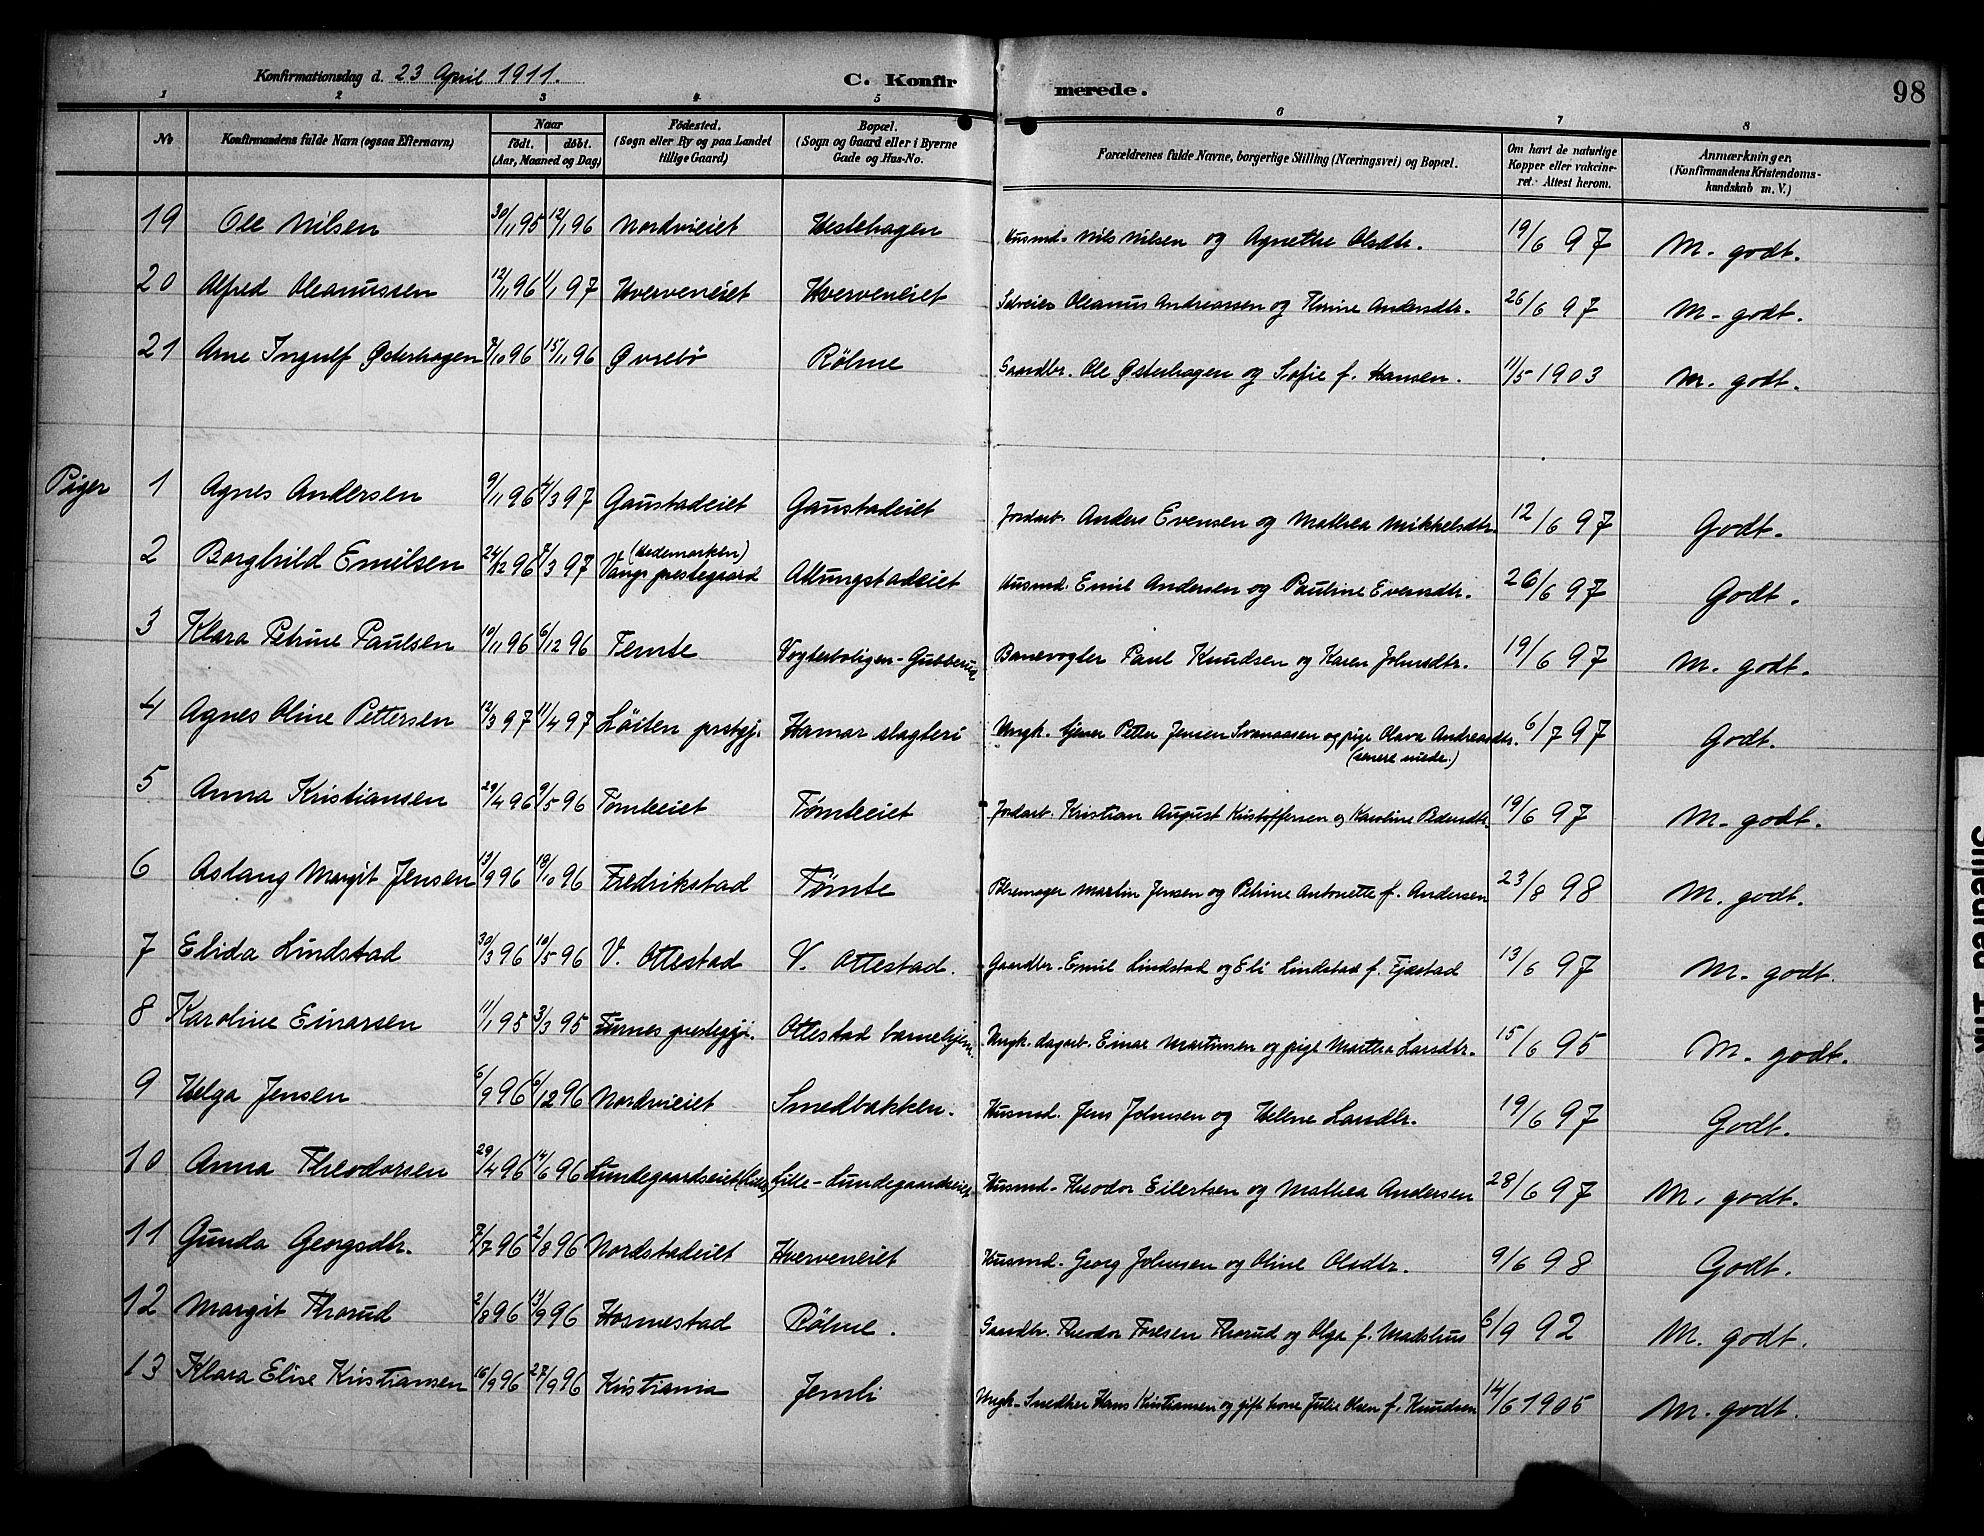 Konfirmationsdag d. 23 April 1911. C. Konfirmerede. 98
1 2 3 4 5 6 7 8
No Konfirmandens fulde Navn (ogsaa Efternavn) Naar født. døbt. (Aar, Maaned og Dag) Fødested. (Sogn eller By og paa Landet tillige Gaard) Bopæl. (Sogn og Gaard eller i Byerne Gade og Hus-No. Forældrenes fulde Navne, borgerlige Stilling (Næringsvei) og Bopæl. Om havt de naturlige Kopper eller vakcineret. Attest herom. Anmærkninger. (Konfirmandens Kristendomskundskab m. V.)
19 Ole Nilsen 30/11 95 12/1 96 Nordvieiet Hestehagen Husmd. Nils Nilsen og Agnethe Olsdtr. 19/6 97 M. godt.
20 Alfred Oleanussen 12/11 96 1/1 97 Hverveneiet Hverveneiet Selveier Oleanus Andreassen og Thrine Andersdtr. 26/6 97 M. godt.
21 Arne Ingulf Østerhagen 7/10 96 15/11 96 Øvrebø Röhne Gaardbr. Ole Østerhagen og Sofie f. Hansen. 11/5 1903 M. godt.
Piger 1 Agnes Andersen 9/11 96 4/3 97 Gaustadeiet Gaustadeiet Jordarb. Anders Evensen og Mathea Mikkelsdtr. 12/6 97 Godt.
2 Borghild Emilsen 24/12 96 7/3 97 Vangs prestegaard (Hedemarken) Allungstadeiet Husmd. Emil Andersen og Pauline Evensdtr. 26/6 97 Godt.
3 Klara Petrine Paulsen 10/11 96 6/12 96 Temte Vogterboligen-Gubberud Banevogter Paul Knudsen og Karen Johnsdtr. 19/6 97 M. godt.
4 Agnes Oline Pettersen 12/3 97 11/4 97 Löiten prstgj. Hamar slagteri Ungk. tjener Petter Jensen Svenaasen og pige Olava Andreasdtr. (senere miede.) 6/7 97 Godt.
5 Anna Kristiansen 29/4 96 9/5 96 Tømteeiet Tømteeiet Jordarb. Kristian August Kristoffersen og Karoline Pedersdtr. 19/6 97 M. godt.
6 Aslaug Margit Jensen 13/9 96 18/10 96 Fredrikstad Tømte Pølsemager Martin Jensen og Petrine Antonette f. Andersen 23/8 98 M. godt.
7 Elida Lindstad 30/3 96 10/5 96 V. Ottestad V. Ottestad. Gaardbr. Emil Lindstad og Eli Lindstad f. Tjæstad 13/6 97 M. godt.
8 Karoline Einarsen 11/1 95 3/3 95 Furnes prestegj. Ottestad barnehjem Ungk. dagarb. Einar Martinsen og pige Marthea Larsdtr. 15/6 95 M. godt.
9 Helga Jensen 6/9 96 6/12 96 Nordvieiet Smedbakken. Husmd. Jens Johnsen og Helene Larsdtr. 19/6 97 Godt.
10 Anna Theodorsen 29/4 96 14/6 96 Lundegaardseiet (Lille) Lille-Lundegaardseiet Husmd. Theodor Eilertsen og Mathea Andersen 28/6 97 M. godt.
11 Gunda Georgsdtr. 7/7 96 2/8 96 Nordstadeiet Hverveneiet Husmd. Georg Johnsen og Oline Olsdtr. 9/6 98 Godt.
12 Margit Thorud 2/8 96 13/9 96 Hosmestad Röhne. Gaardbr. Theodor Toresen Thorud og Olga f. Madshus 6/9 92 M. godt.
13 Klara Elise Kristiansen 16/9 96 27/9 96 Kristiania Jemli Ungk. Snedker Hans Kristiansen og gift kone Julie Olsen f. Knudsen 14/6 1905 M. godt.